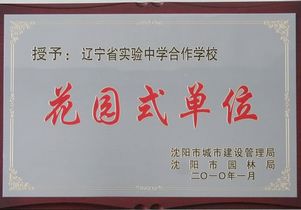 授予：辽宁省实验中学合作学校
花园式单位
沈阳市城市建设管理局
沈阳市园林局
二〇一〇年一月